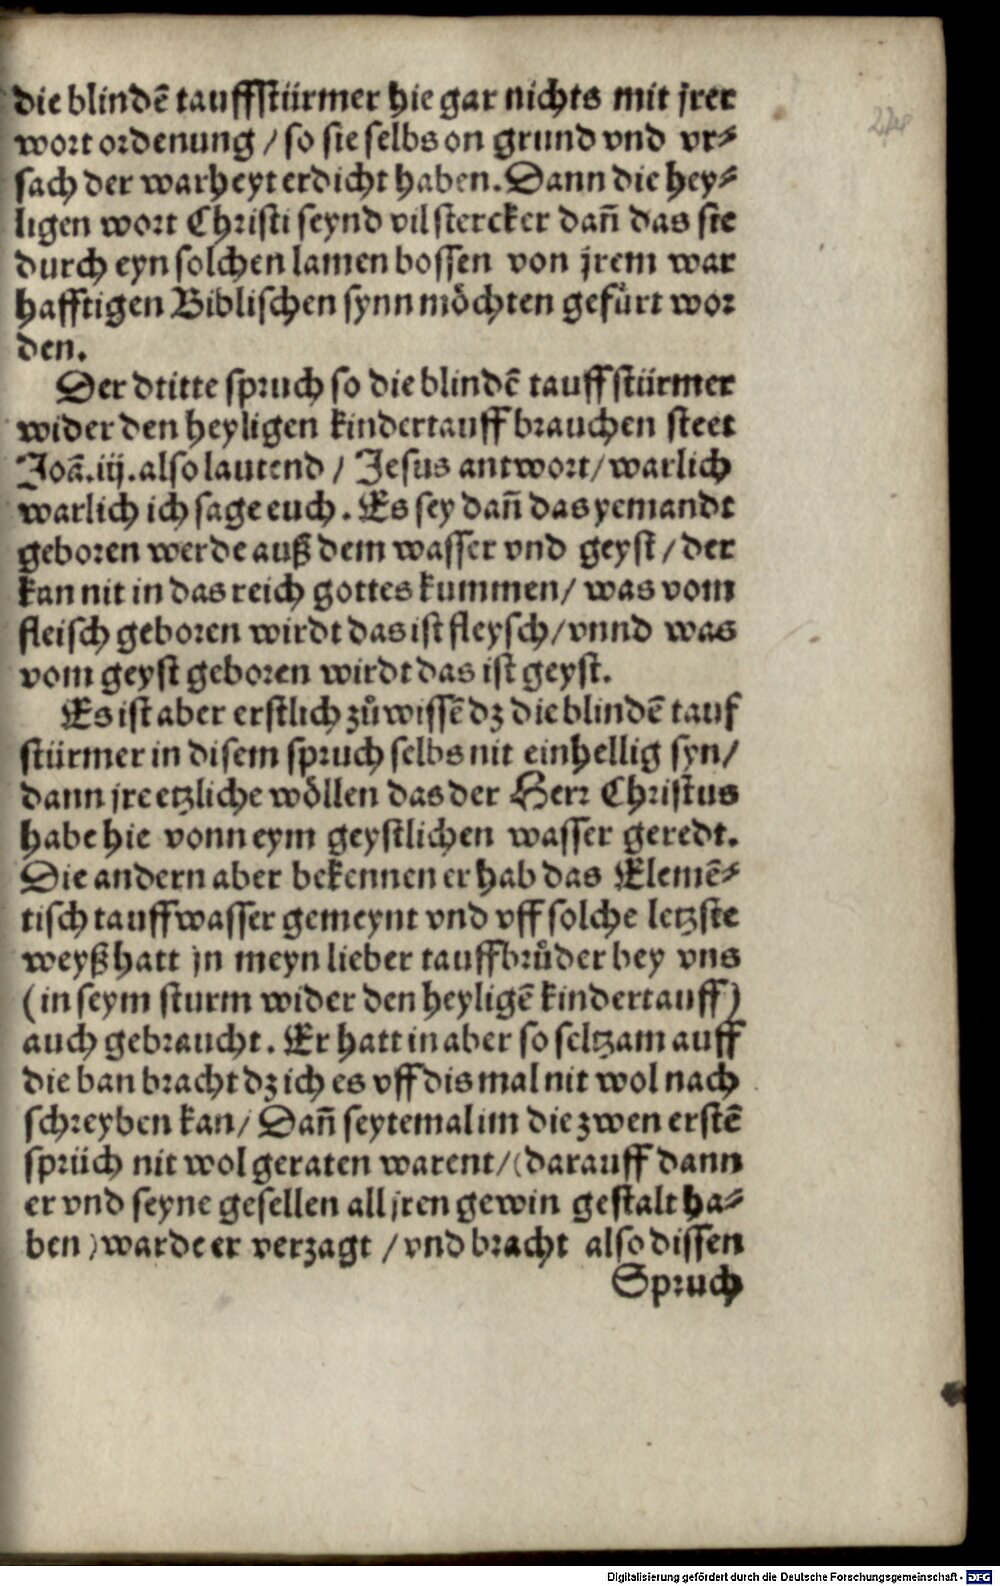 die blindē tauffstürmer hie gar nichts mit jrer
wort ordenung / so sie selbs on grund vnd vr⸗
sach der warheyt erdicht haben. Dann die hey⸗
ligen wort Christi seynd vil stercker dañ das sie
durch eyn solchen lamen bossen von jrem war
hafftigen Biblischen synn möchten gefürt wor
den.
Der dtitte spruch so die blindē tauffstürmer
wider den heyligen kindertauff brauchen steet
Joā.iij. also lautend / Jesus antwort / warlich
warlich ich sage euch. Es sey dañ das yemandt
geboren werde auß dem wasser vnd geyst / der
kan nit in das reich gottes kummen / was vom
fleisch geboren wirdt das ist fleysch / vnnd was
vom geyst geboren wirdt das ist geyst.
Es ist aber erstlich zůwissē dz die blindē tauf
stürmer in disem spruch selbs nit einhellig syn /
dann jre etzliche wöllen das der Herr Christus
habe hie vonn eym geystlichen wasser geredt.
Die andern aber bekennen er hab das Elemē⸗
tisch tauffwasser gemeynt vnd vff solche letzste
weyß hatt jn meyn lieber tauffbrůder bey vns
(in seym sturm wider den heyligē kindertauff)
auch gebraucht. Er hatt in aber so seltzam auff
die ban bracht dz ich es vff dis mal nit wol nach
schreyben kan / Dañ seytemal im die zwen erstē
sprüch nit wol geraten warent / (darauff dann
er vnd seyne gesellen all jren gewin gestalt ha⸗
ben) warde er verzagt / vnd bracht also dissen
Spruch
Digitalisierung gefördert durch die Deutsche Forschungsgemeinschaft - DFG